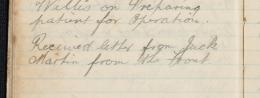 Willis on Preparing
patient for Operation.
Received letter from Jack
Martin from the Front